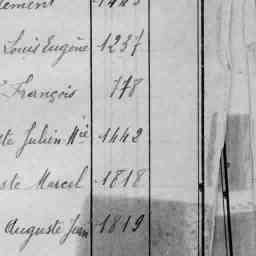 Louis Eugène 1237
François 778
Julien Mie 1442
ste Marcel 1818
Auguste Jean 1819